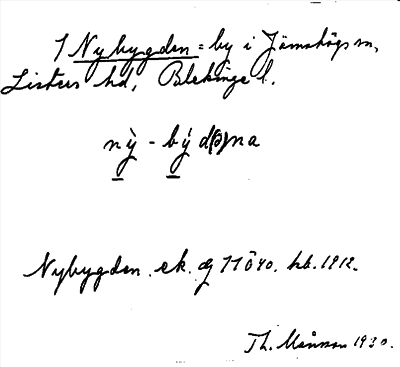 1 Nybygden = by i Jämshögs sn,
Listers hd, Blekinge l.
nỳ - bý d(ə)na
Nybygden ek. bl 11 Ö 40. hb. 1912.
Th. Månsson 1930.